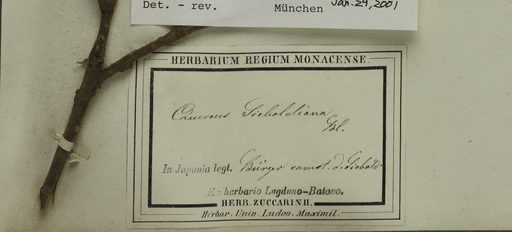 Det. - rev. München Jan. 29, 2001
HERBARIUM REGIUM MONACENSE.
Quercus Sieboldiana
Bl.
In Japonia legt. Bürger comt. d. Siebold.
Ex herbario Lugduno-Batavo.
HERB. ZUCCARINII.
Herbar. Univ. Ludov. Maximil.